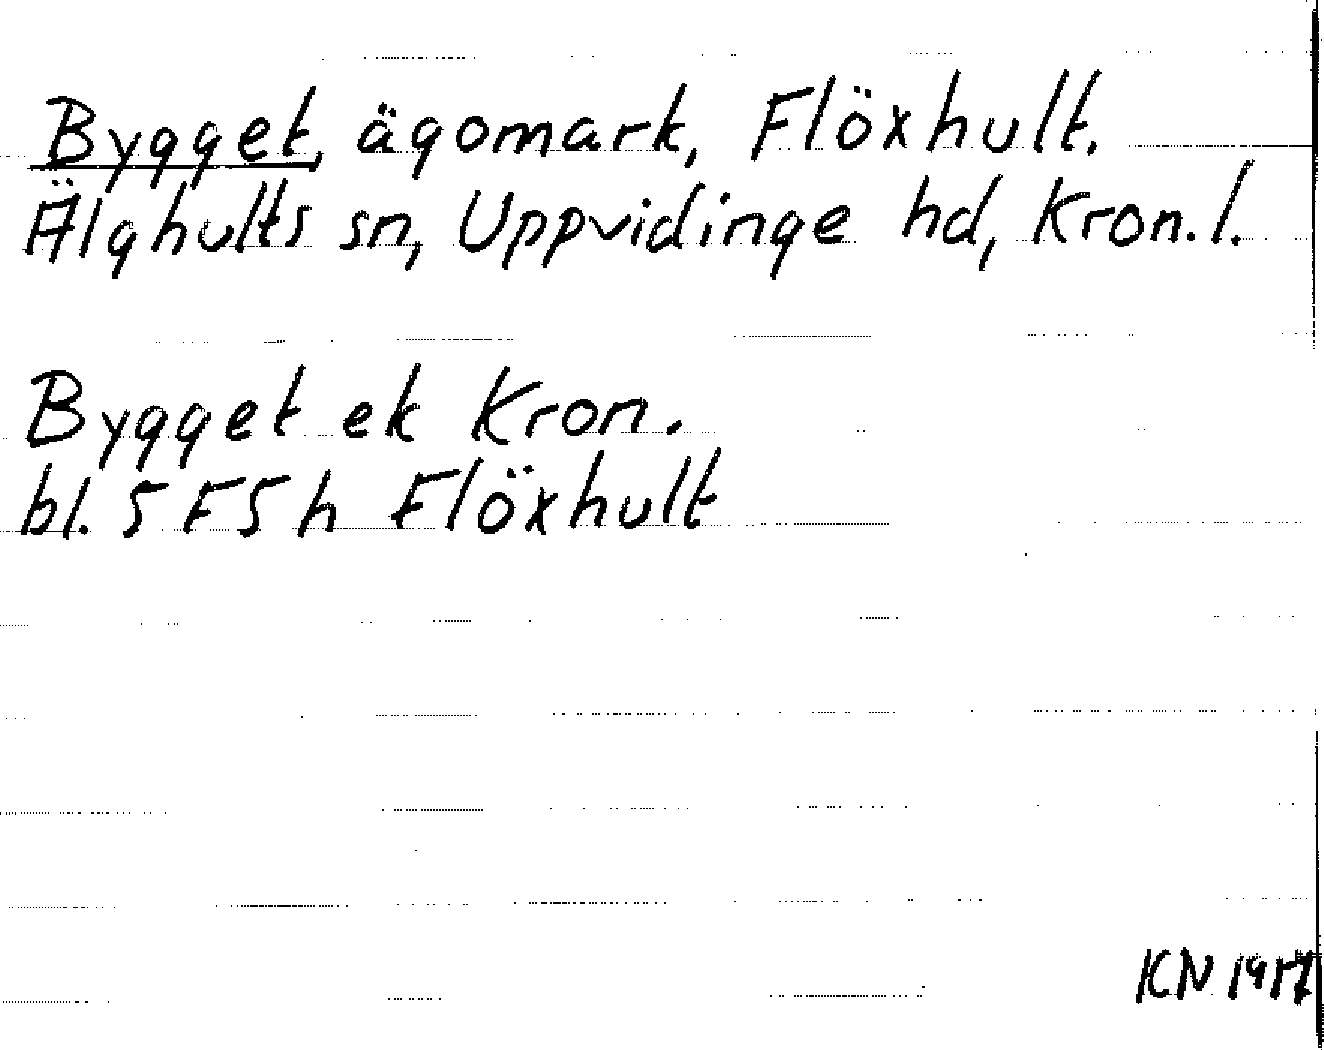 Bygget, ägomark, Flöxhult.
Älghults sn, Uppvidinge hd, Kron. l.
Bygget ek Kron.
bl. 5 F 5 h Flöxhult
KN